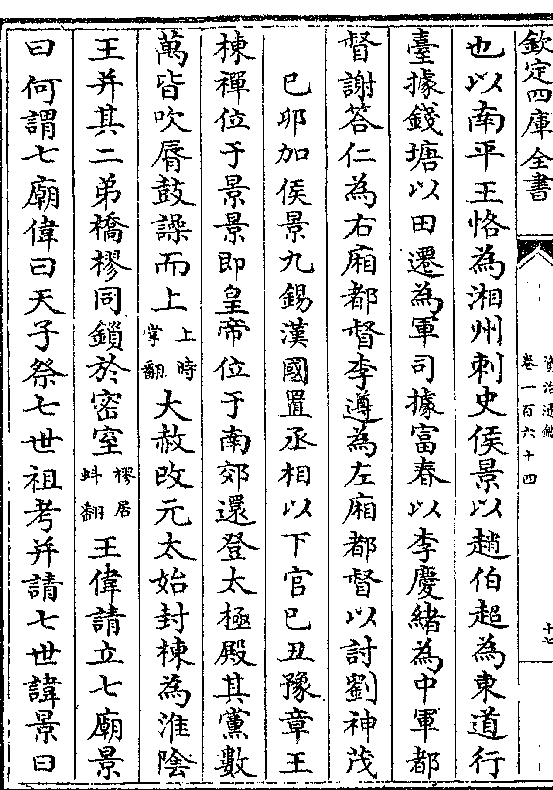 欽定四庫全書
資治通鑑
卷一百六十四
十七
也以南平王恪為湘州刺史侯景以趙伯超為東道行
臺據錢塘以田遷為軍司據富春以李慶緒為中軍都
督謝答仁為右廂都督李遵為左廂都督以討劉神茂
己卯加侯景九錫漢國置丞相以下官己丑豫章王
棟禪位于景景即皇帝位于南郊還登太極殿其黨數
萬皆吹脣鼓譟而上上時掌翻大赦改元太始封棟為淮陰
王并其二弟橋樛同鎖於密室樛居蚪翻王偉請立七廟景
曰何謂七廟偉曰天子祭七世祖考并請七世諱景曰